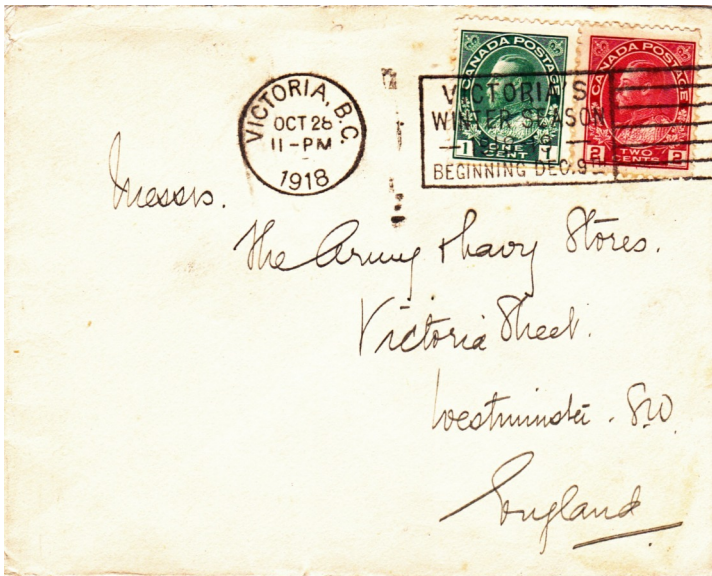 VICTORIA, B.C.
OCT 28
11-PM
1918
VICTORIA'S
WINTER SEASON
BEGINNING DEC. 9
CANADA POSTAGE
1 ONE CENT 1
CANADA POSTAGE
2 TWO CENTS 2
Messrs.
The Army & Navy Stores.
Victoria Street.
Westminster. S.W.
England